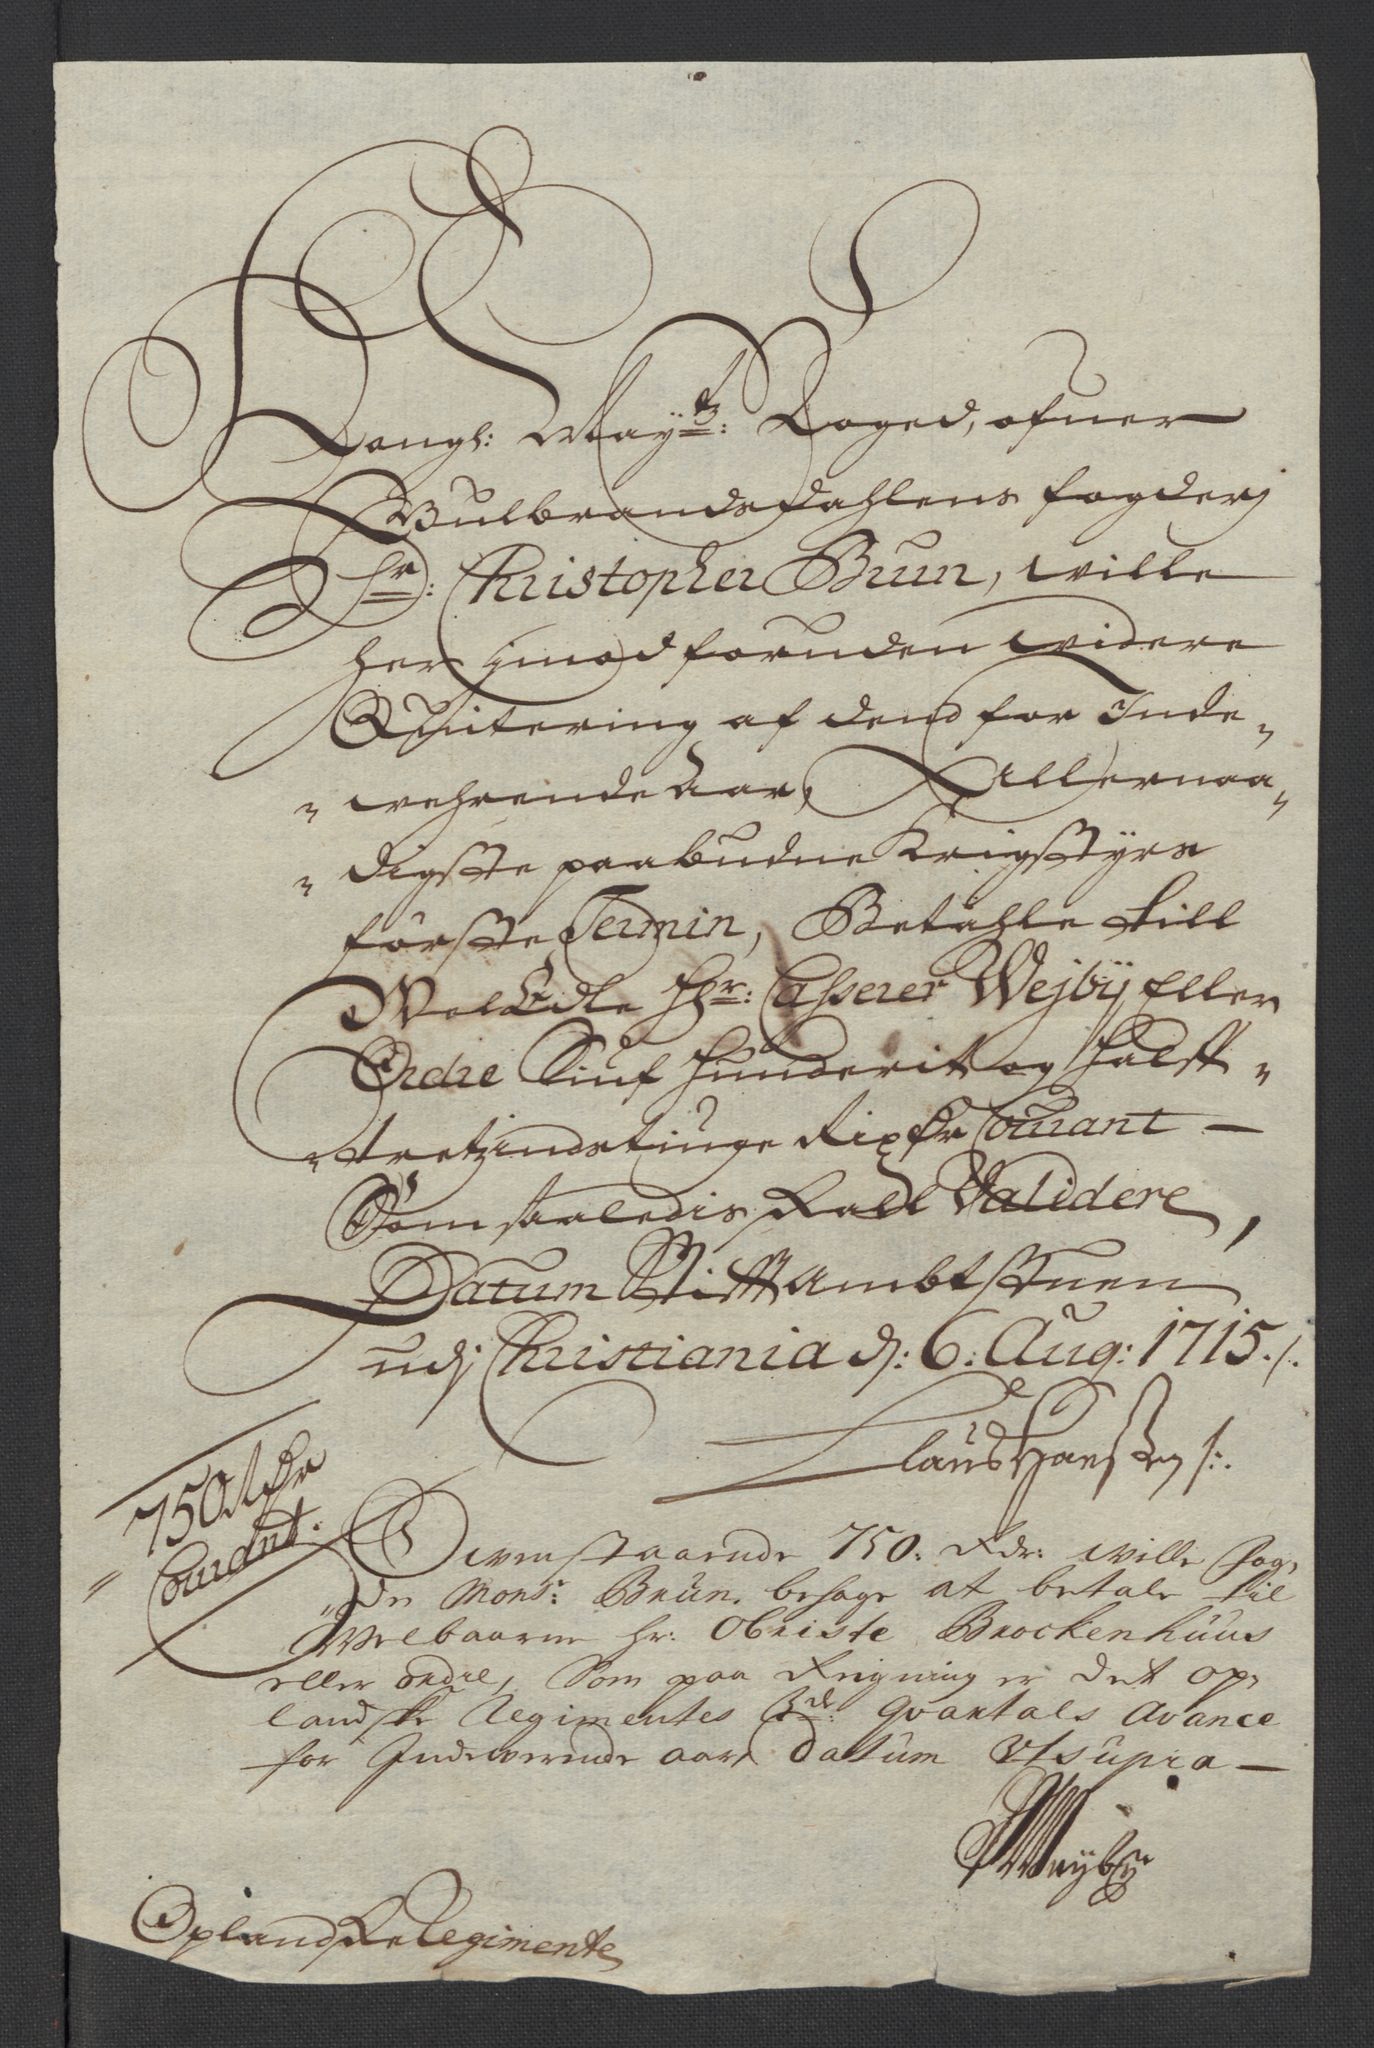 Kongl: May:tz Foged, ofuer
Gulbrandsdahlens fogderj
Hr: Christopher Brun, wille
her imod foruden widere
Qvitering af dend for Inde-
wehrende Aar, Allernaa-
digste paabudne Krigstyrs
förste Termin, Betahle till
WelEdle Hr: Casserer Wejby Eller
Ordre Siuf Hunderit og halff-
tretzindstiuge Rixdr Courant —
Som saaledis skall Validere,
Datum StifftAmbtstuen
udj Christiania d: 6. Aug: 1715./.
Claus Hansken /:.
750 Rdr
Courant:
Ovenstaaende 750: Rdr: wille Fog,
de Mons: Brun. behage at betale til
Welbaarne hr: Obriste Brockenhuus
eller ordre, Som paa Reigning er det op,
landske Regimentes 3de: Qvartals Avance
for Indewerende aar Datum Utsupra —
Weyby
Oplandske Regimente